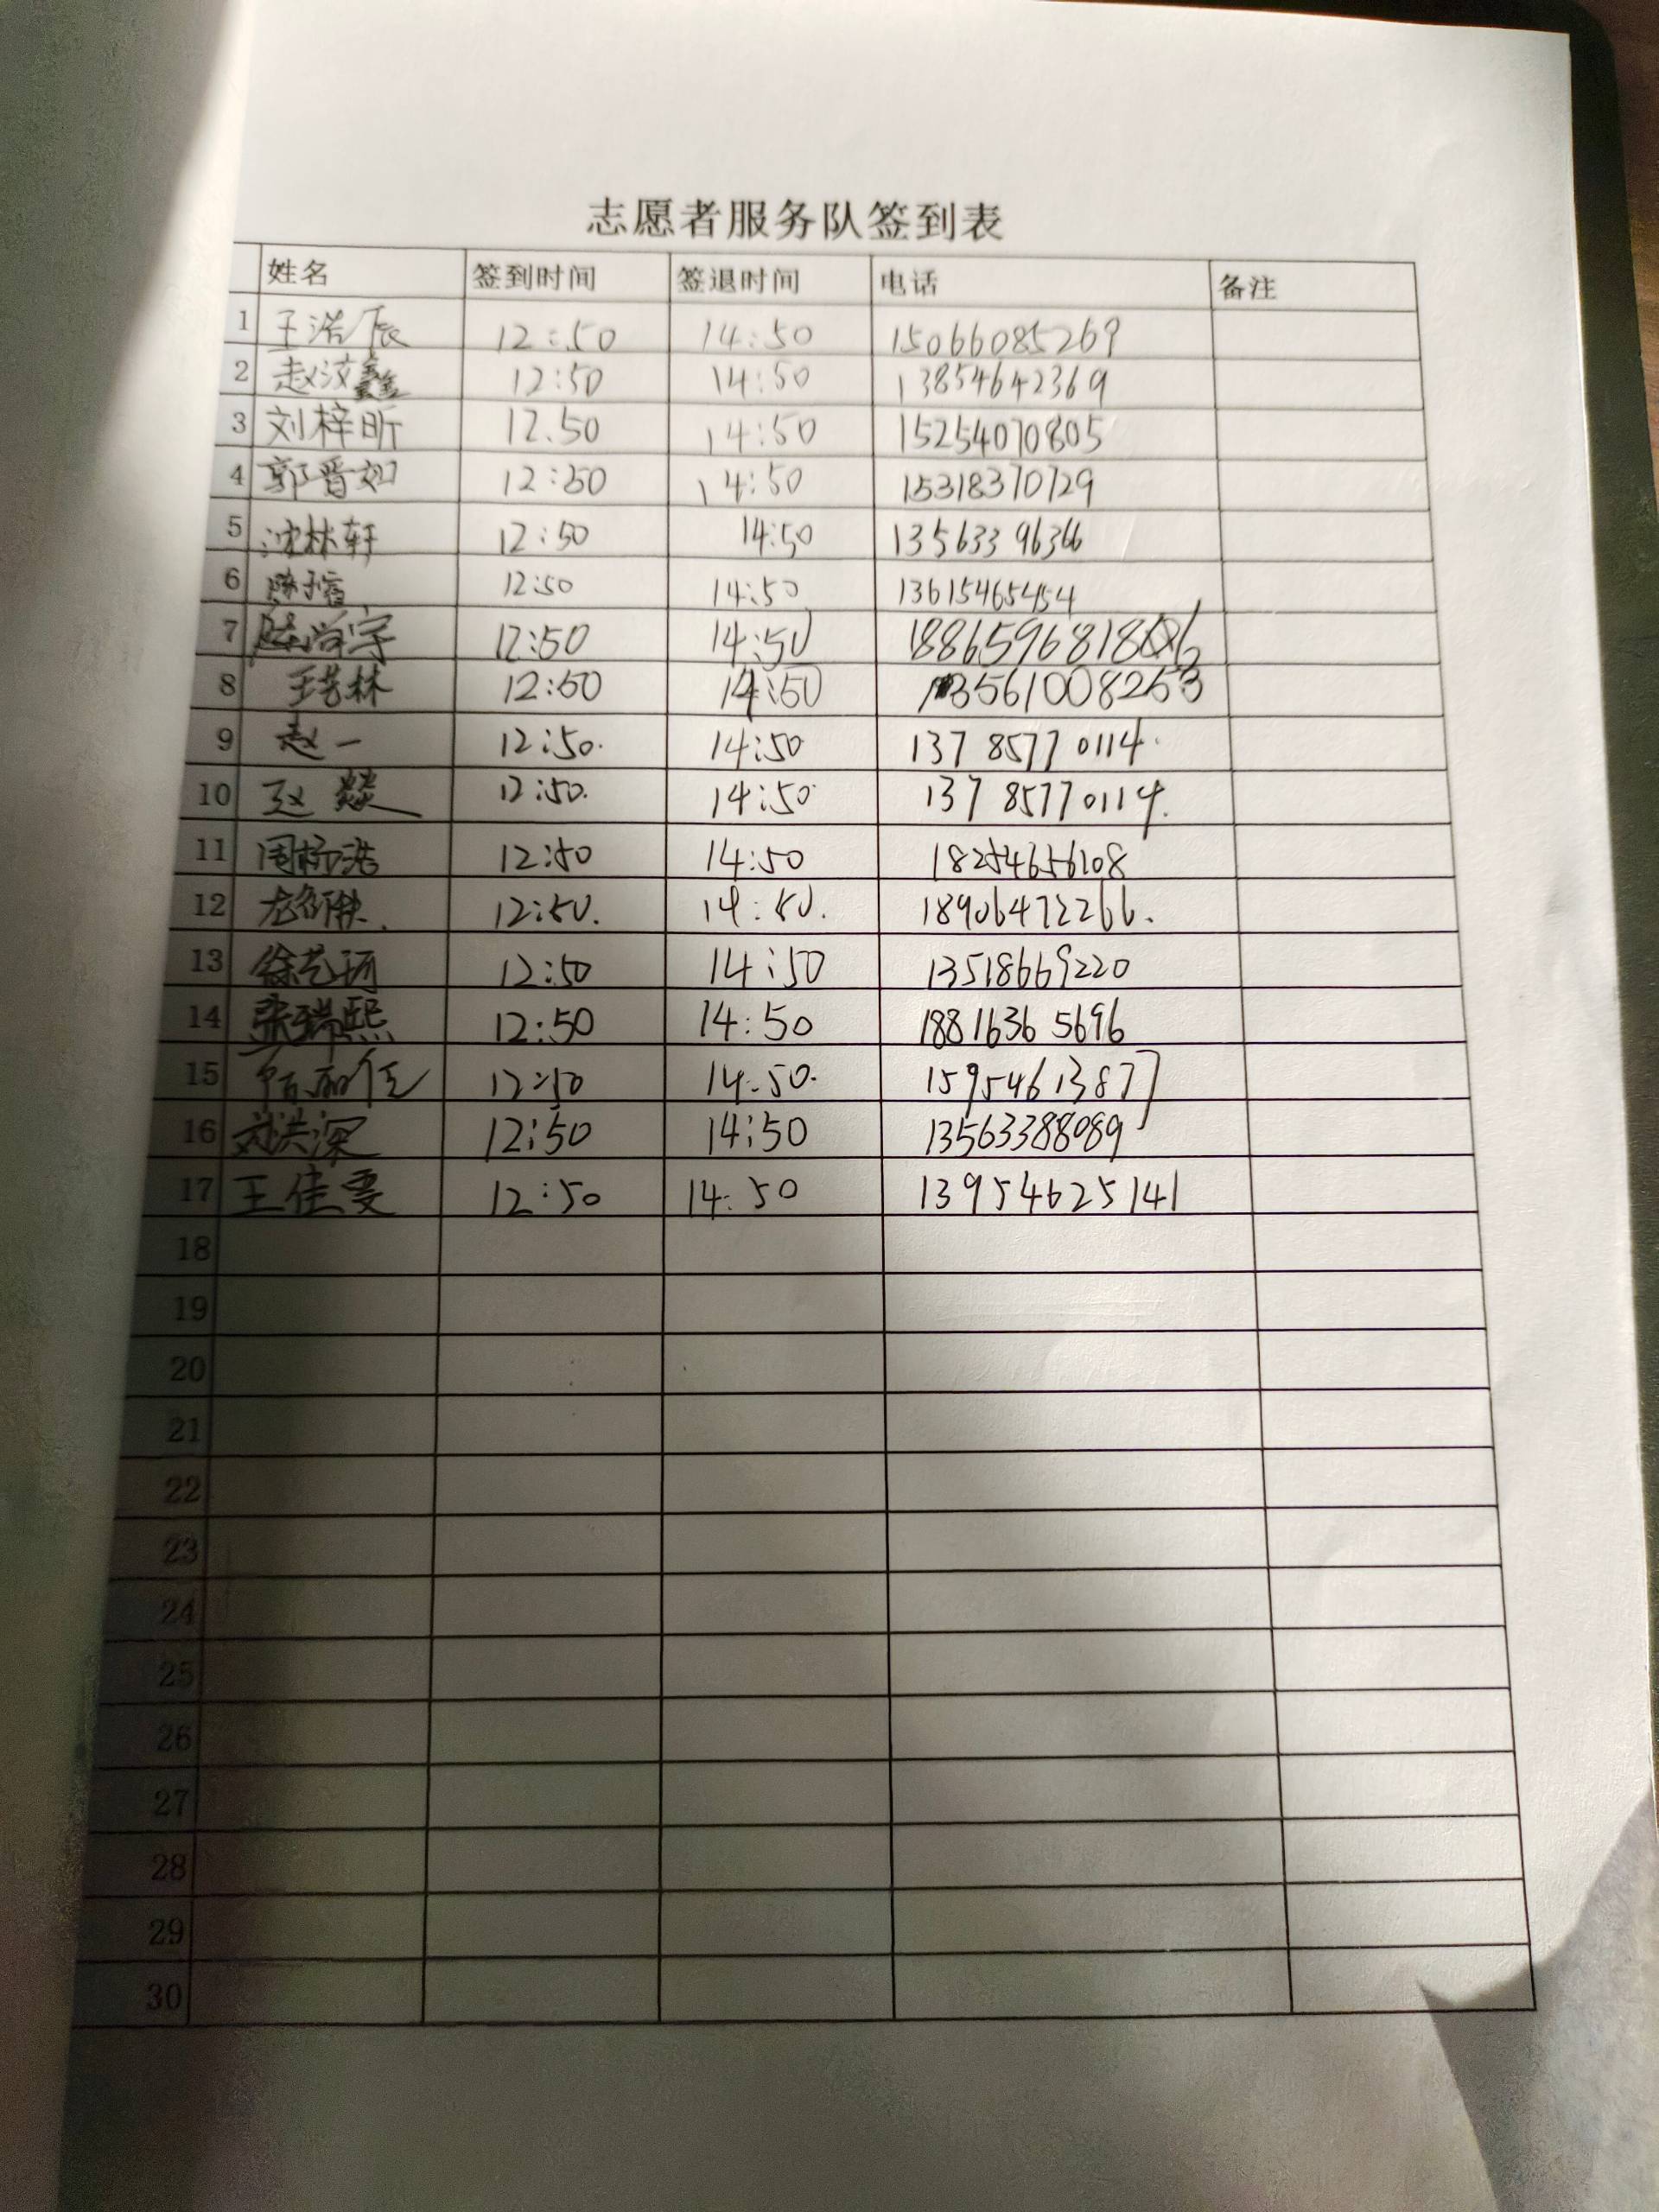 志愿者服务队签到表
姓名 签到时间 签退时间 电话 备注
1 王浩辰 12:50 14:50 15066085269
2 赵汶鑫 12:50 14:50 13854642369
3 刘梓昕 12.50 14:50 15254070805
4 郭晋如 12:50 14:50 15318370729
5 沈林轩 12:50 14:50 13563396366
6 12:50 14:50 13615465454
7 12:50 14:50
8 王若林 12:50 14:50 13561008253
9 赵一 12:50. 14:50 137 8577 0114.
10 赵燚 12:50. 14:50 137 8577 0114.
11 周杨浩 12:50 14:50 18254656108
12 12:50. 14:50. 18906472266.
13 徐艺珂 12:50 14:50 13518669220
14 张瑞熙 12:50 14:50 1881636 5696
15 12:50 14:50. 15954613877
16 刘洪深 12:50 14:50 13563388089
17 王佳雯 12:50 14:50 13954625141
18
19
20
21
22
23
24
25
26
27
28
29
30